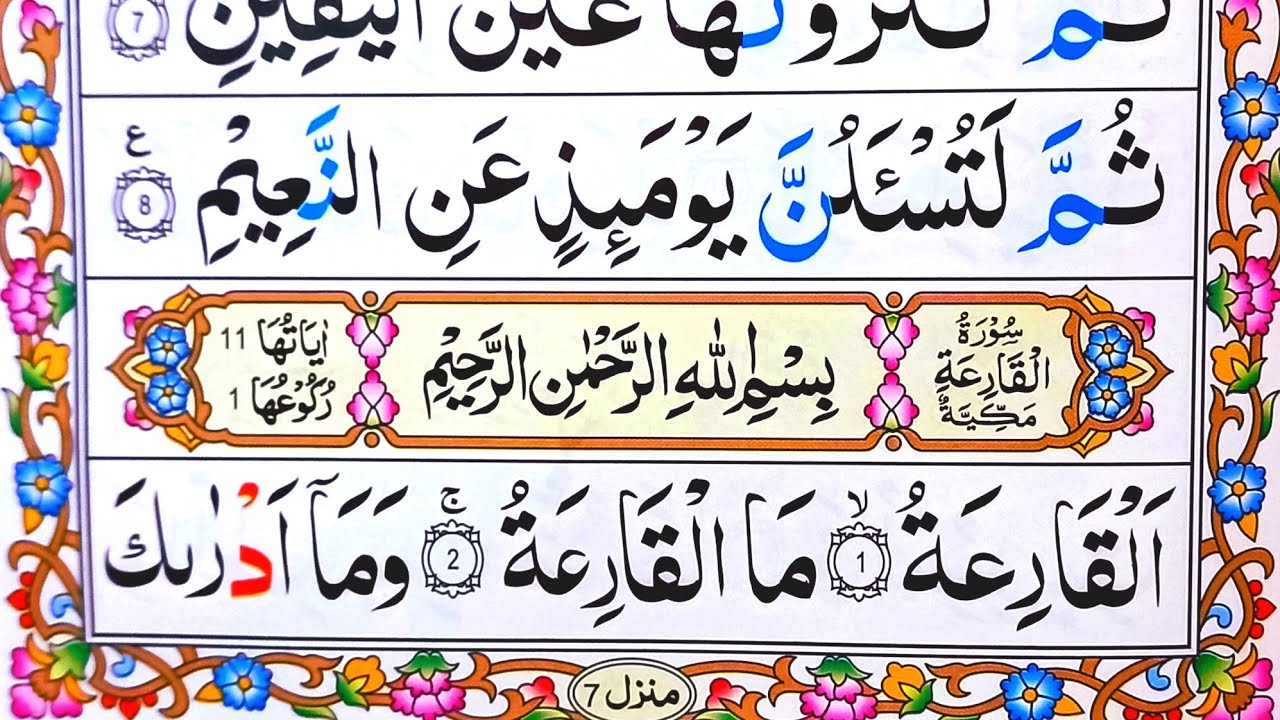 ثُمَّ لَتَرَوُنَّهَا عَيْنَ الْيَقِيْنِ 7
ثُمَّ لَتُسْـَٔلُنَّ يَوْمَىِٕذٍ عَنِ النَّعِيْمِ ع 8
سُوْرَةُ الْقَارِعَةِ مَكِّيَّةٌ
بِسْمِ اللّٰهِ الرَّحْمٰنِ الرَّحِيْمِ
اٰيَاتُهَا 11
رُكُوْعُهَا 1
اَلْقَارِعَةُ ۙ 1 مَا الْقَارِعَةُ ۚ 2 وَمَاۤ اَدْرٰىكَ
منزل 7